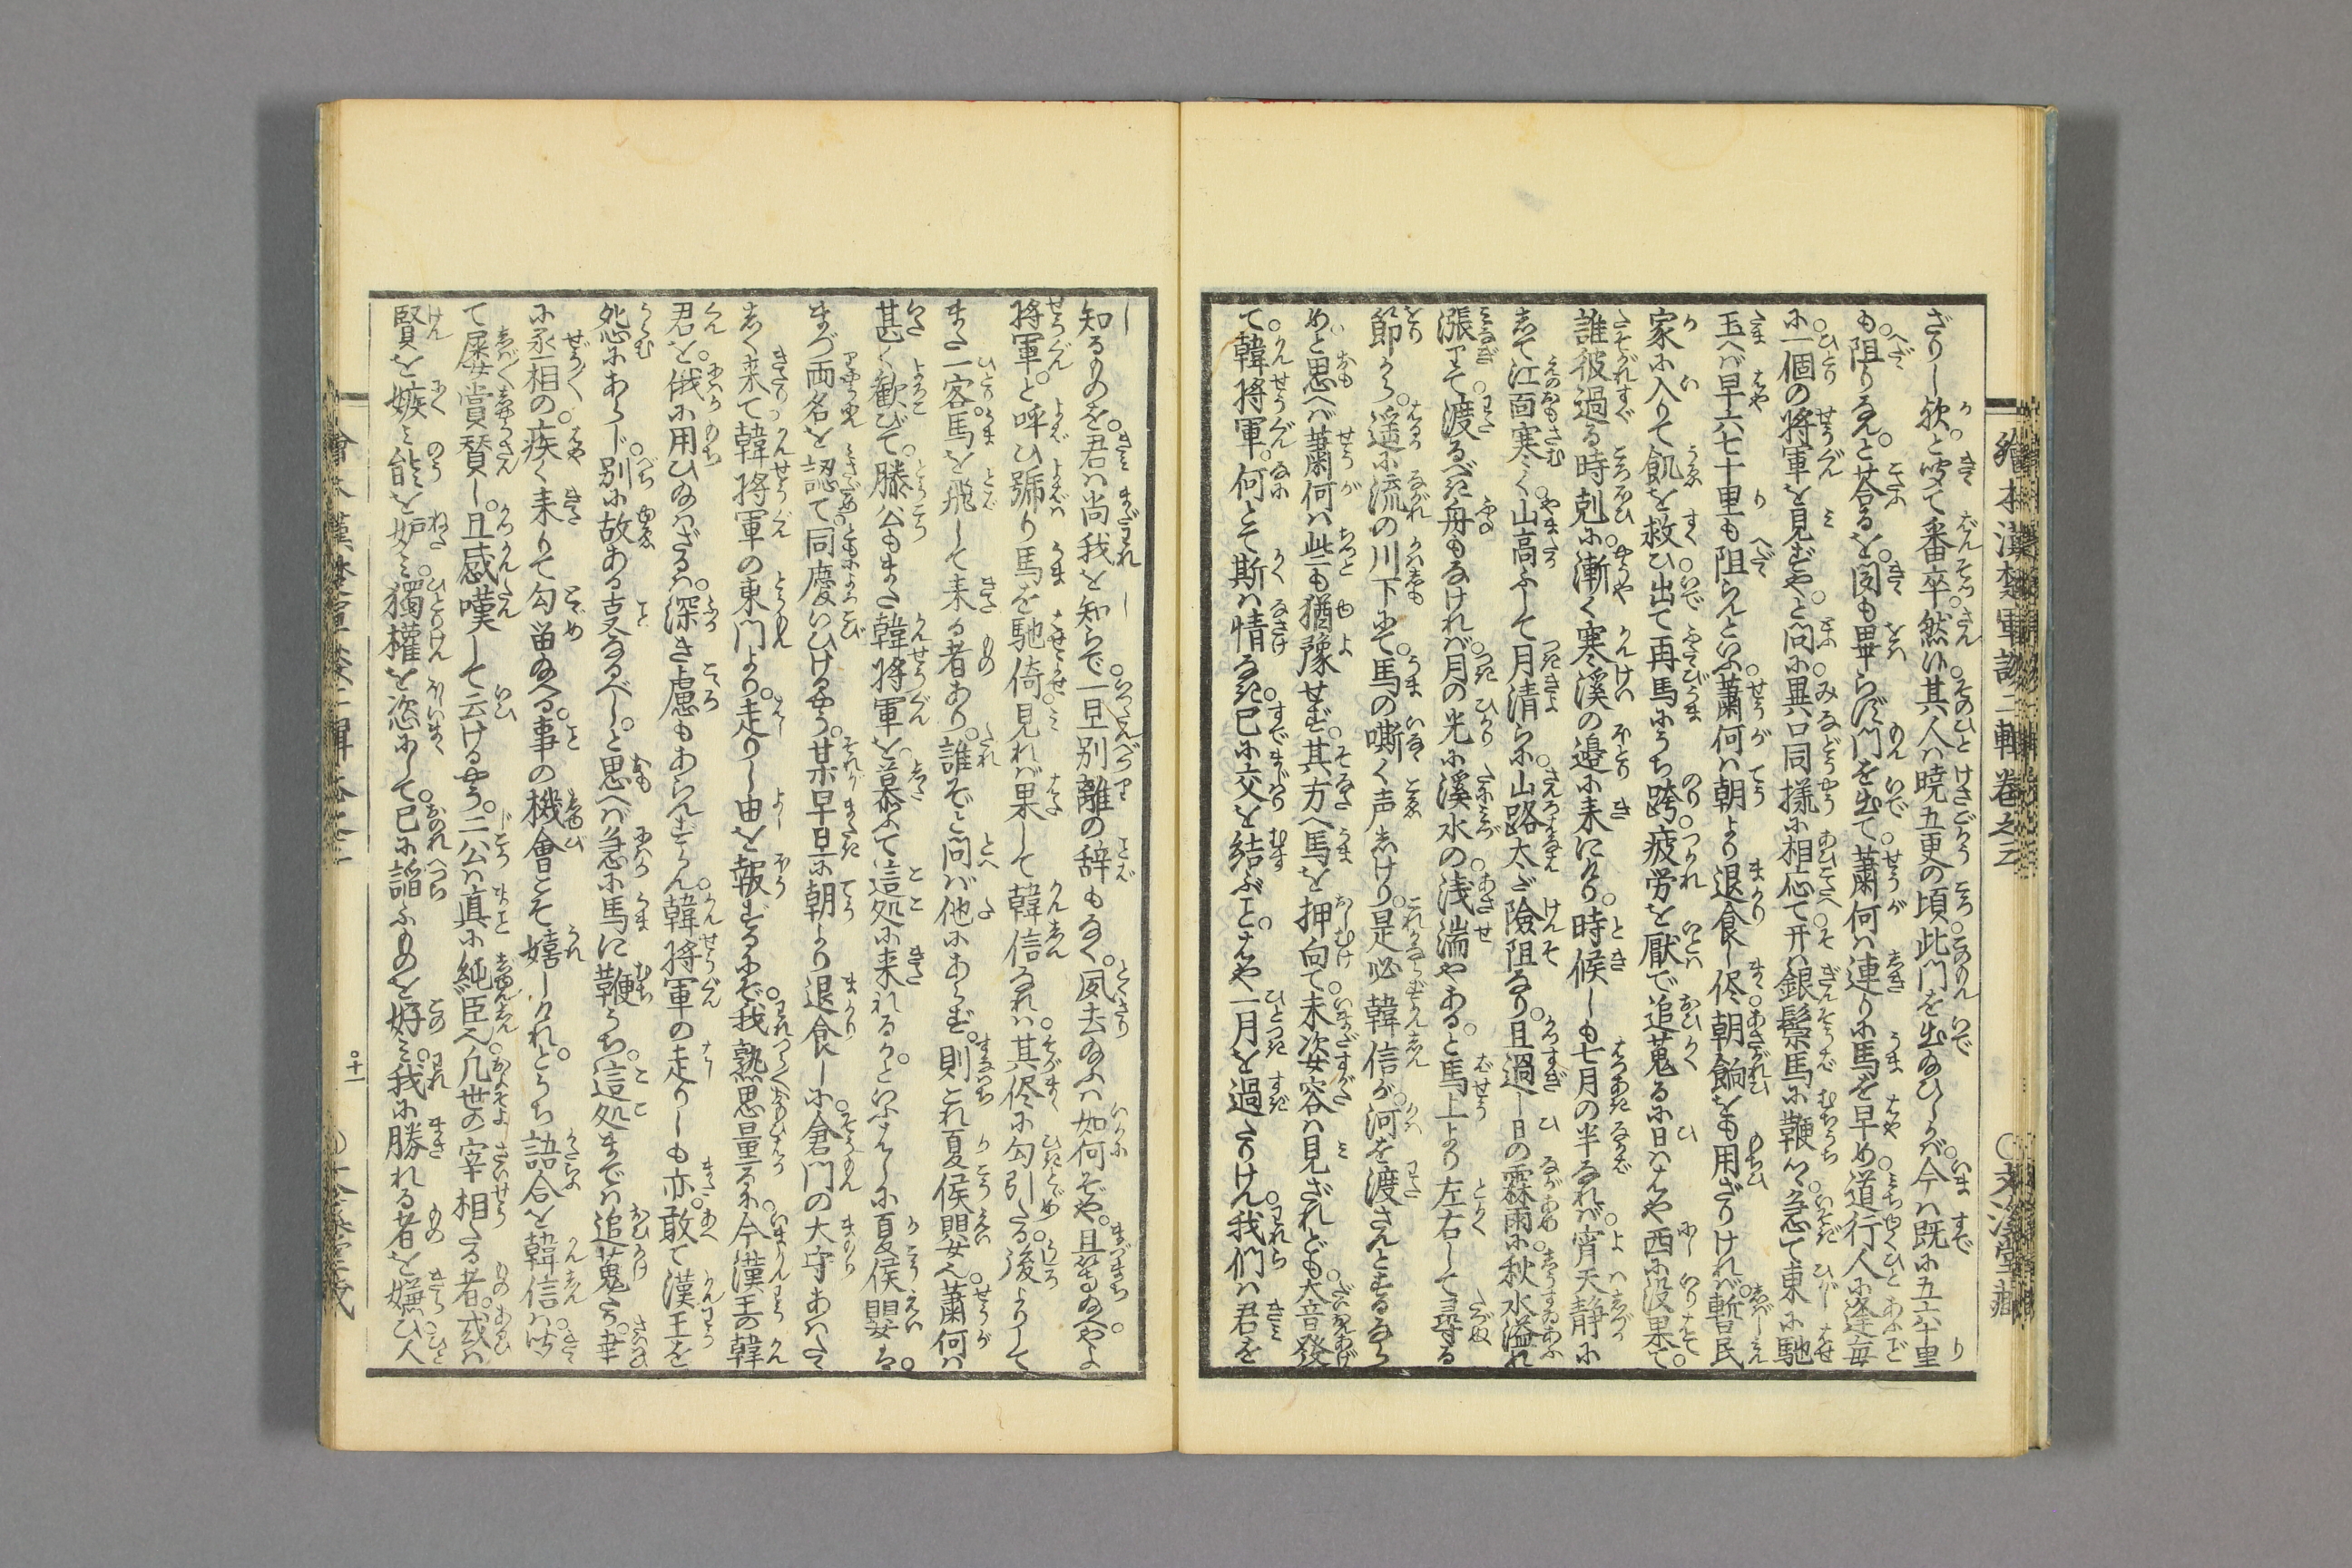 繪本漢楚軍談二輯卷之三 ○文溪堂藏
ざりし欤と呼て番卒然バ其人ハ曉五更の頃此門を出給ひしが今ハ既に五六十里
も阻りなんと答るを図も畢らず門を出て蕭何ハ連りに馬を早め道行人に逢毎
に一個の將軍を見ずやと問に異口同様に相応て开ハ銀鬃馬に鞭て急て東に馳
玉へバ早六七十里も阻らんといふ蕭何ハ朝より退食し侭朝餉をも用ざりければ暫民
家に入りて飢を救ひ出て再馬にうち跨疲労を厭で追蒐るに日ハはや西に没果て
誰彼過る時剋に漸く寒溪の邉に来にけり時候しも七月の半なれバ宵天静に
して江面寒く山高ふして月清らに山路太ど險阻なり且過し日の霖雨に秋水溢れ
漲りて渡るべき舟もなけれバ月の光に溪水の浅湍やあると馬上より左右して尋る
節から遥に流の川下にて馬の嘶く声しけり是必韓信が河を渡さんとするなら
めと思へバ蕭何ハ些も猶豫せず其方へ馬を押向て未次女容ハ見ざれども大音發
て韓将軍何とて斯ハ情なき已に交を結ぶことはや一月を過たりけん我們ハ君を
知るものを君ハ尚我を知らで一旦別離の辞もなく夙去給ふハ如何ぞや且等給へやよ
将軍と呼ひ號り馬を馳倚見れバ果して韓信なれバ其侭に勾引たる後よりして
また一客馬を飛して来る者あり誰ぞと問バ他にあらず則これ夏侯嬰也蕭何ハ
甚く歓びて滕公もまた韓将軍を慕ふて這処に来れるかといふはしに夏侯嬰ハ
まづ両名を認て同慶いひけるやう某早旦に朝より退食しに倉門の大守あハたゝ
しく来て韓将軍の東門より走りし由を報ずるにぞ我熟思量るに今漢王の韓
君を俄に用ひ給ハざるハ深き慮もあらんずらん韓将軍の走りしも亦敢て漢王を
怨にあらじ別に故ある支なるべしと思へバ急に馬に鞭うち這処までハ追蒐たり幸
に丞相の疾く来りて勾留給へる事の機會こそ嬉しけれとうち語合を韓信ハ呼
て屡賞賛し且感嘆して云けるやう二公ハ真に純臣也凡世の宰相たる者或ハ
賢を嫉ミ能を妒ミ獨權を恣にして已に謟ふものを好ミ我に勝れる者を嫌ひ人
十一